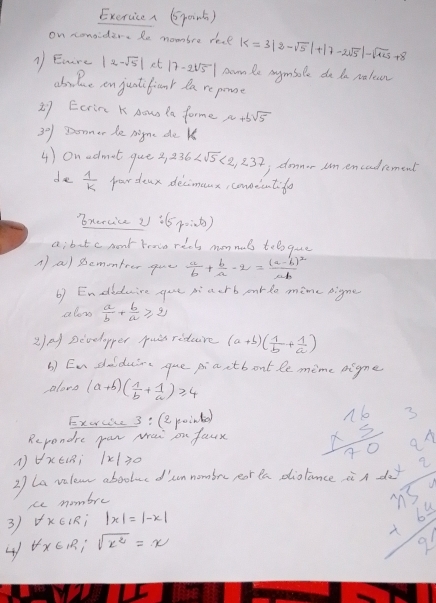 Exercice 1 (5 points)
On considère le nombre réel K = 3|2-√5| + |7-2√5| - √125 + 8
1) Ecrire |2-√5| et |7-2√5| sans le symbole de la valeur
absolue en justifiant la reponse
2°) Ecrire K sous la forme a+b√5
3°) Donner le signe de K
4) On admet que 2,236<√5<2,237, donner un encadrement
de 1/K par deux décimaux consécutifs
Exercice 2 : (5 points)
a; b et c sont trois réels non nuls tels que
1) a) Demontrer que a/b + b/a - 2 = (a-b)²/ab
b) En déduire que si a et b ont le même signe
alors a/b + b/a ≥ 2
2) a) Développer puis réduire (a+b)(1/b + 1/a)
b) En déduire que si a et b ont le même signe
alors (a+b)(1/b + 1/a) ≥ 4
Exercice 3 : (2 points)
Repondre par vrai ou faux
1) ∀x∈IR; |x|≥0
2) La valeur absolue d'un nombre est la distance à 1 de
ce nombre
3) ∀x∈IR; |x| = |-x|
4) ∀x∈IR; √x² = x
16
x 5
70
3